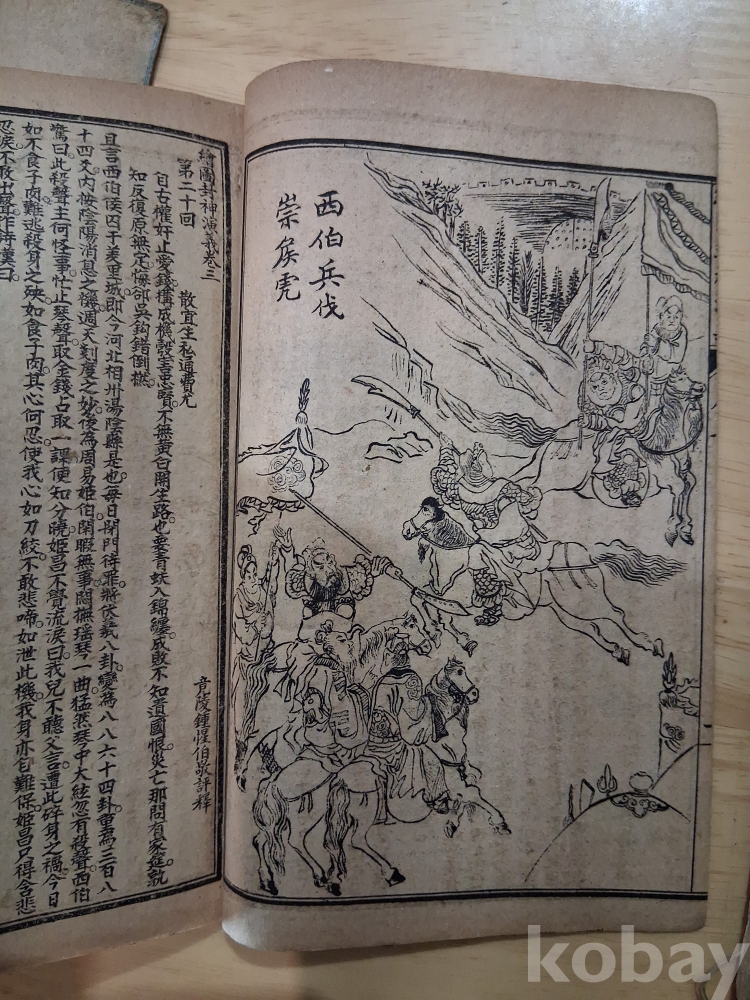 西伯兵伐
崇矦虎
繪圖封神演義卷三
竟陵鍾惺伯敬評釋
第二十回 散宜生私通費尤
自古權奸止愛錢構成機彀害忠賢不無黃白開生路也要青蚨入錦纏成敗不知遺國恨災亡那問有家筵孰
知反復原無定悔卻吳鈎錯倒撚
且言西伯侯囚于羑里城即今河北相州湯陰縣是也每日閉門待罪將伏羲八卦變為八八六十四卦重為三百八
十四爻內按陰陽消息之機週天刻度之妙後為周易姬伯閑暇無事悶撫瑤琴一曲猛然琴中大絃忽有殺聲西伯
驚曰此殺聲主何怪事忙止琴聲取金錢占取一課便知分曉姬昌不覺流淚曰我兒不聽父言遭此碎身之禍今日
如不食子肉難逃殺身之殃如食子肉其心何忍使我心如刀絞不敢悲啼如泄此機我身亦自難保姬昌只得含悲
忍淚不敢出聲作詩嘆曰
kobay